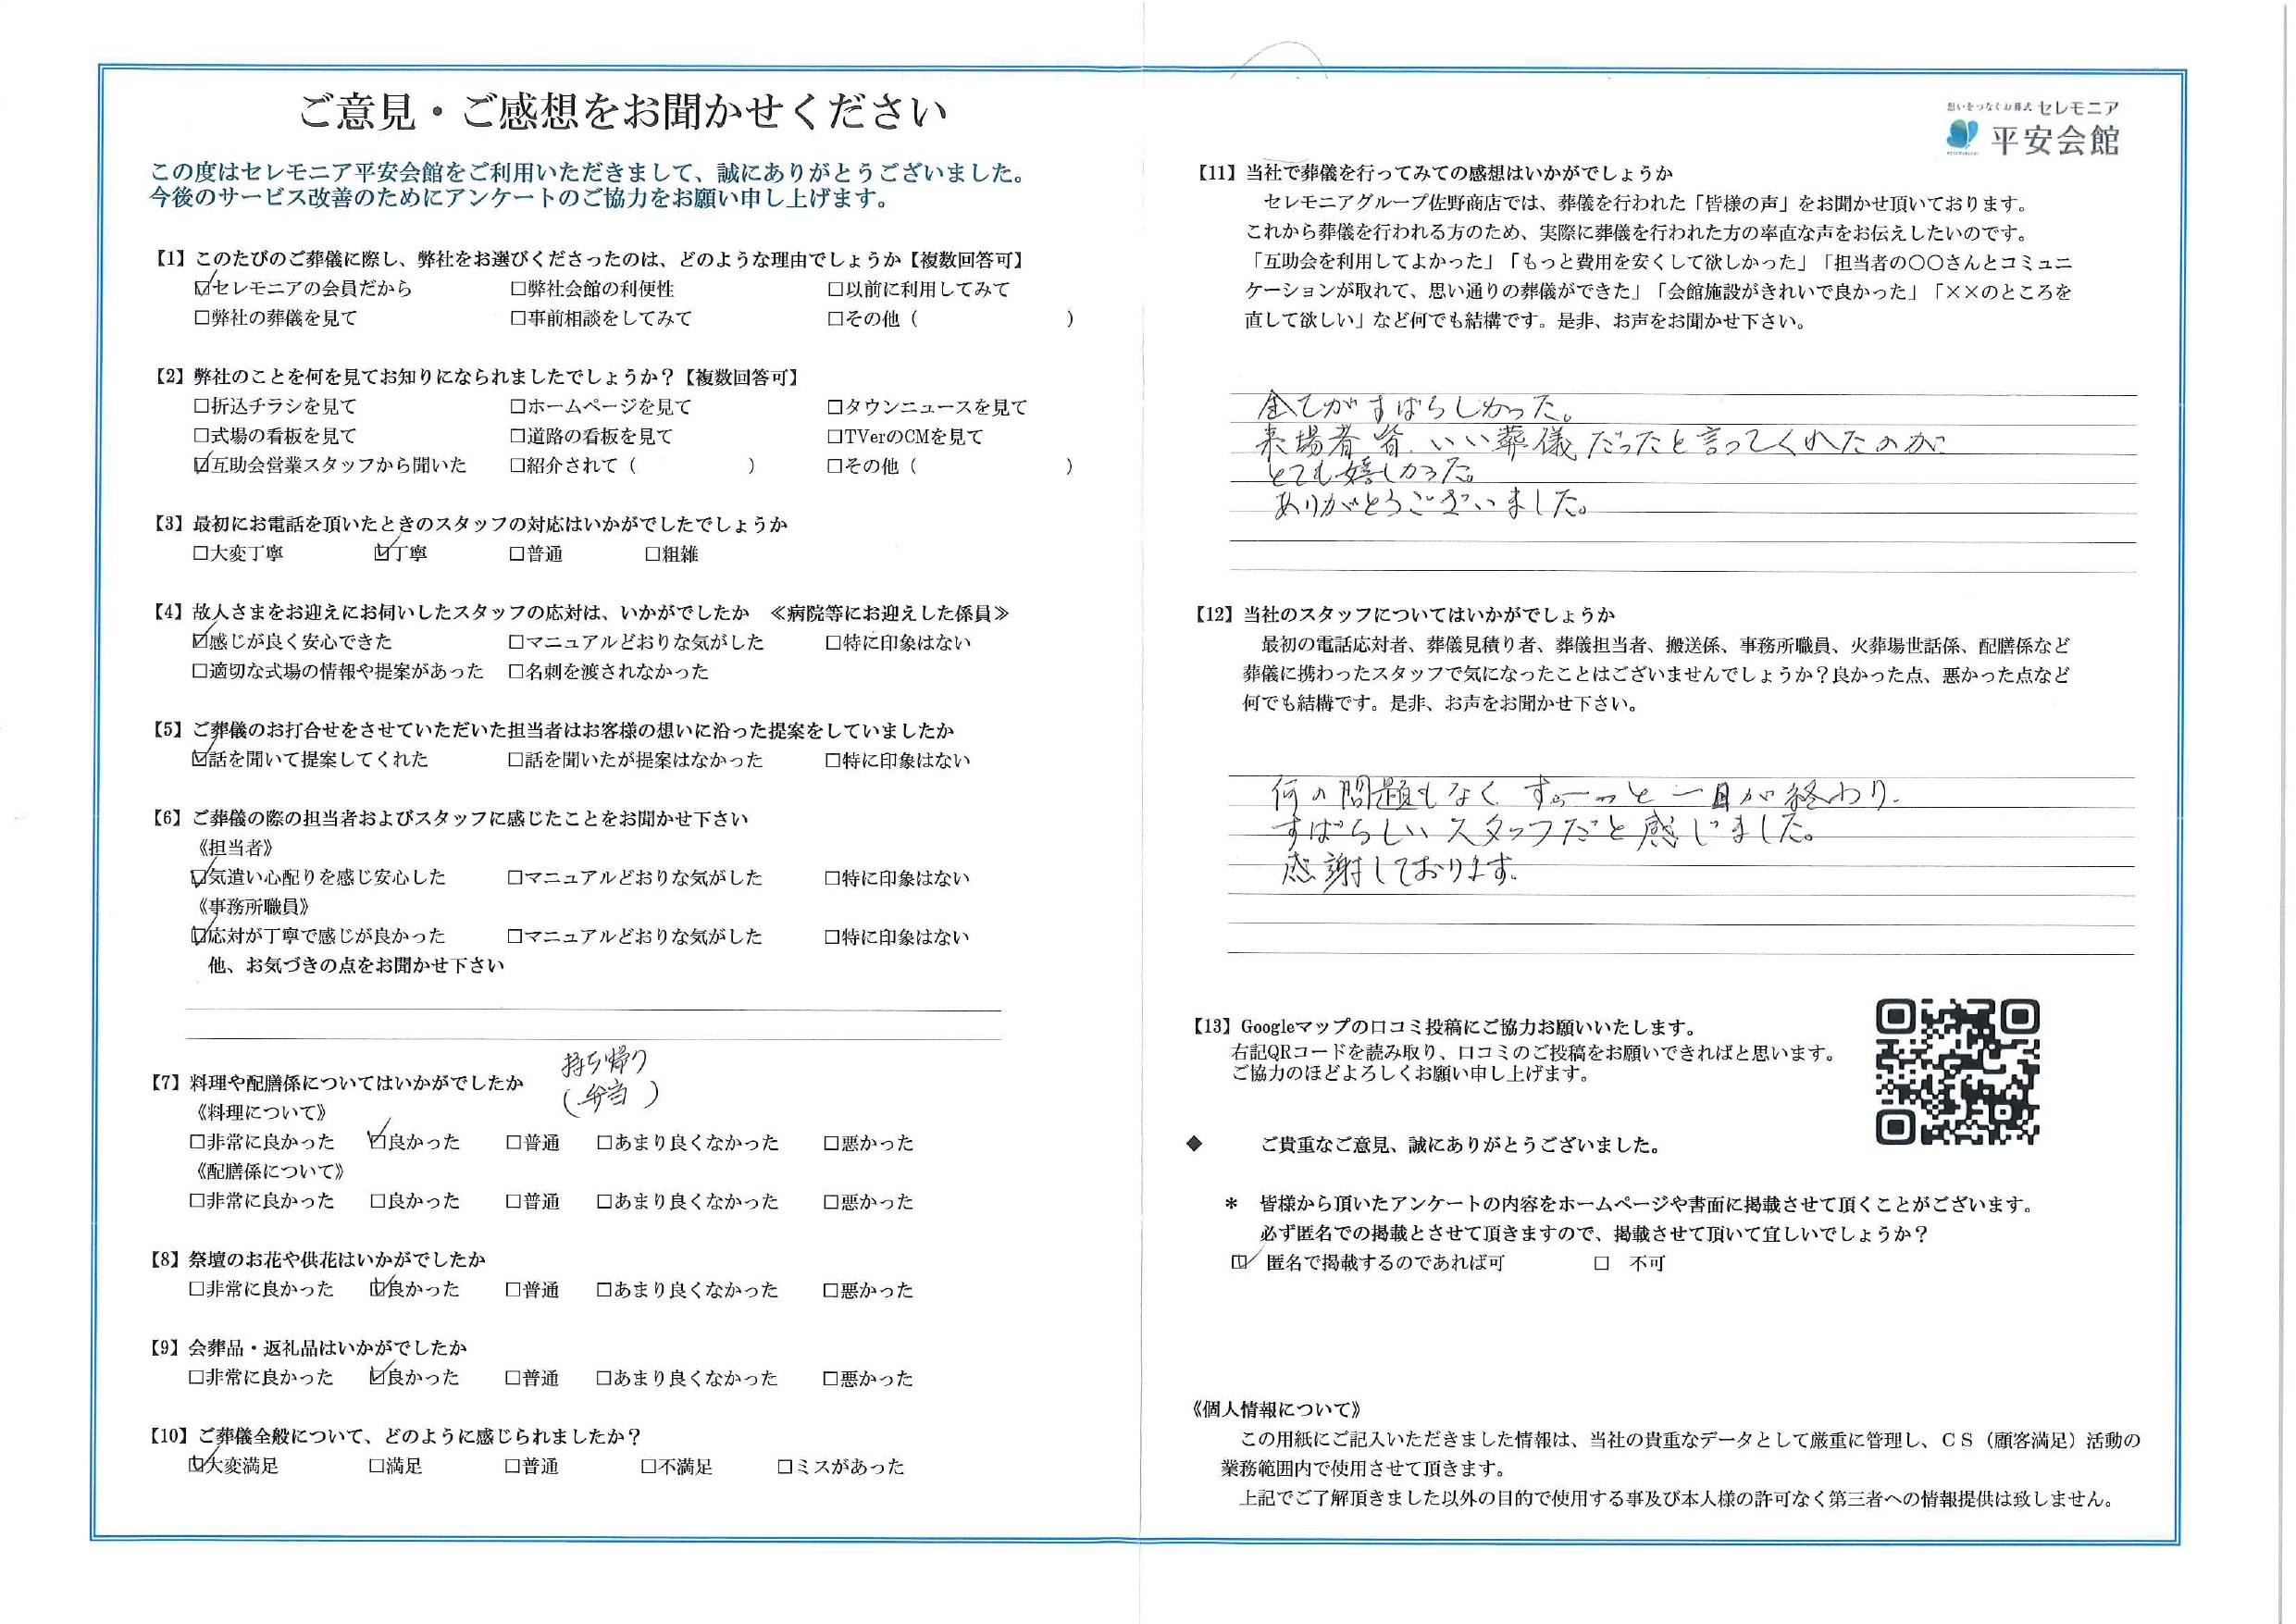 ご意見・ご感想をお聞かせください
この度はセレモニア平安会館をご利用いただきまして、誠にありがとうございました。
今後のサービス改善のためにアンケートのご協力をお願い申し上げます。
【1】このたびのご葬儀に際し、弊社をお選びくださったのは、どのような理由でしょうか【複数回答可】
☑セレモニアの会員だから □弊社会館の利便性 □以前に利用してみて
□弊社の葬儀を見て □事前相談をしてみて □その他（ ）
【2】弊社のことを何を見てお知りになられましたでしょうか？【複数回答可】
□折込チラシを見て □ホームページを見て □タウンニュースを見て
□式場の看板を見て □道路の看板を見て □TVerのCMを見て
☑互助会営業スタッフから聞いた □紹介されて（ ） □その他（ ）
【3】最初にお電話を頂いたときのスタッフの対応はいかがでしたでしょうか
□大変丁寧 ☑丁寧 □普通 □粗雑
【4】故人さまをお迎えにお伺いしたスタッフの応対は、いかがでしたか ≪病院等にお迎えした係員≫
☑感じが良く安心できた □マニュアルどおりな気がした □特に印象はない
□適切な式場の情報や提案があった □名刺を渡されなかった
【5】ご葬儀のお打合せをさせていただいた担当者はお客様の想いに沿った提案をしていましたか
☑話を聞いて提案してくれた □話を聞いたが提案はなかった □特に印象はない
【6】ご葬儀の際の担当者およびスタッフに感じたことをお聞かせ下さい
《担当者》
☑気遣い心配りを感じ安心した □マニュアルどおりな気がした □特に印象はない
《事務所職員》
☑応対が丁寧で感じが良かった □マニュアルどおりな気がした □特に印象はない
他、お気づきの点をお聞かせ下さい
持ち帰り
（弁当）
【7】料理や配膳係についてはいかがでしたか
《料理について》
□非常に良かった ☑良かった □普通 □あまり良くなかった □悪かった
《配膳係について》
□非常に良かった □良かった □普通 □あまり良くなかった □悪かった
【8】祭壇のお花や供花はいかがでしたか
□非常に良かった ☑良かった □普通 □あまり良くなかった □悪かった
【9】会葬品・返礼品はいかがでしたか
□非常に良かった ☑良かった □普通 □あまり良くなかった □悪かった
【10】ご葬儀全般について、どのように感じられましたか？
☑大変満足 □満足 □普通 □不満足 □ミスがあった
想いをつなぐお葬式 セレモニア
平安会館
【11】当社で葬儀を行ってみての感想はいかがでしょうか
セレモニアグループ佐野商店では、葬儀を行われた「皆様の声」をお聞かせ頂いております。
これから葬儀を行われる方のため、実際に葬儀を行われた方の率直な声をお伝えしたいのです。
「互助会を利用してよかった」「もっと費用を安くして欲しかった」「担当者の〇〇さんとコミュニ
ケーションが取れて、思い通りの葬儀ができた」「会館施設がきれいで良かった」「××のところを
直して欲しい」など何でも結構です。是非、お声をお聞かせ下さい。
全てがすばらしかった。
来場者皆、いい葬儀だったと言ってくれたのが
とても嬉しかった。
ありがとうございました。
【12】当社のスタッフについてはいかがでしょうか
最初の電話応対者、葬儀見積り者、葬儀担当者、搬送係、事務所職員、火葬場世話係、配膳係など
葬儀に携わったスタッフで気になったことはございませんでしょうか？良かった点、悪かった点など
何でも結構です。是非、お声をお聞かせ下さい。
何の問題もなく すぅーっと一日が終わり、
すばらしいスタッフだと感じました。
感謝しております。
【13】Googleマップの口コミ投稿にご協力お願いいたします。
右記QRコードを読み取り、口コミのご投稿をお願いできればと思います。
ご協力のほどよろしくお願い申し上げます。
◆ ご貴重なご意見、誠にありがとうございました。
＊ 皆様から頂いたアンケートの内容をホームページや書面に掲載させて頂くことがございます。
必ず匿名での掲載とさせて頂きますので、掲載させて頂いて宜しいでしょうか？
☑ 匿名で掲載するのであれば可 □ 不可
《個人情報について》
この用紙にご記入いただきました情報は、当社の貴重なデータとして厳重に管理し、ＣＳ（顧客満足）活動の
業務範囲内で使用させて頂きます。
上記でご了解頂きました以外の目的で使用する事及び本人様の許可なく第三者への情報提供は致しません。